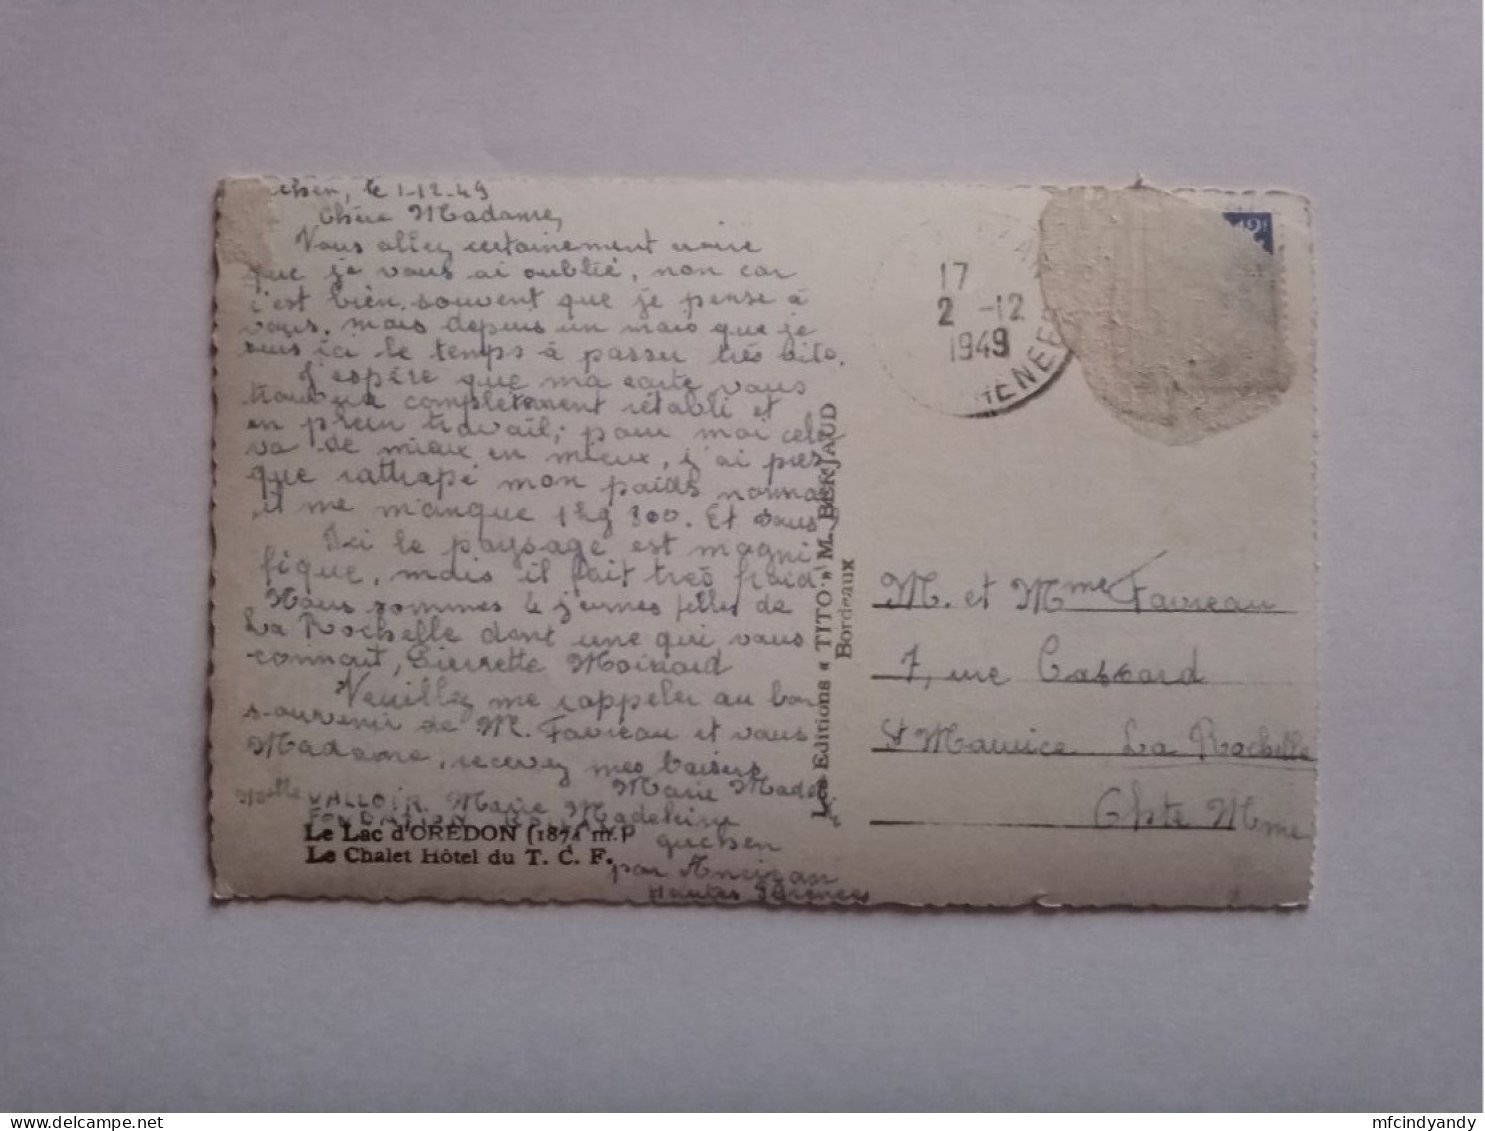 le 1-12-49
Chère Madame,
Vous allez certainement croire
que je vous ai oublié, non car
c'est bien souvent que je pense à
vous, mais depuis un mois que je
suis ici le temps à passer très vite.
J'espère que ma carte vous
trouvera complètement rétabli et
en plein travail; pour moi cela
va de mieux en mieux, j'ai pres
que rattrapé mon poids norma
il me manque 1kg 300. Et vous
Ici le paysage est magni
fique, mais il fait très froid.
Nous sommes 4 jeunes filles de
La Rochelle dont une qui vous
connait, Pierrette Moinard
Veuillez me rappeler au bon
souvenir de M. Favreau et vous
Madame, recevez mes baisers
Marie Mado
Melle VALLOIR. Marie Madeleine
FONDATION
Le Lac d'ORÉDON (1871 m.)
Le Chalet Hôtel du T. C. F.
par Ancizan
Hautes Pyrénées
Les Editions « TITO » M. BERJAUD
Bordeaux
17
2 -12
1949
M. et Mme Favreau
7, rue Cassard
St Maurice La Rochelle
Chte Mme
mfcindyandy